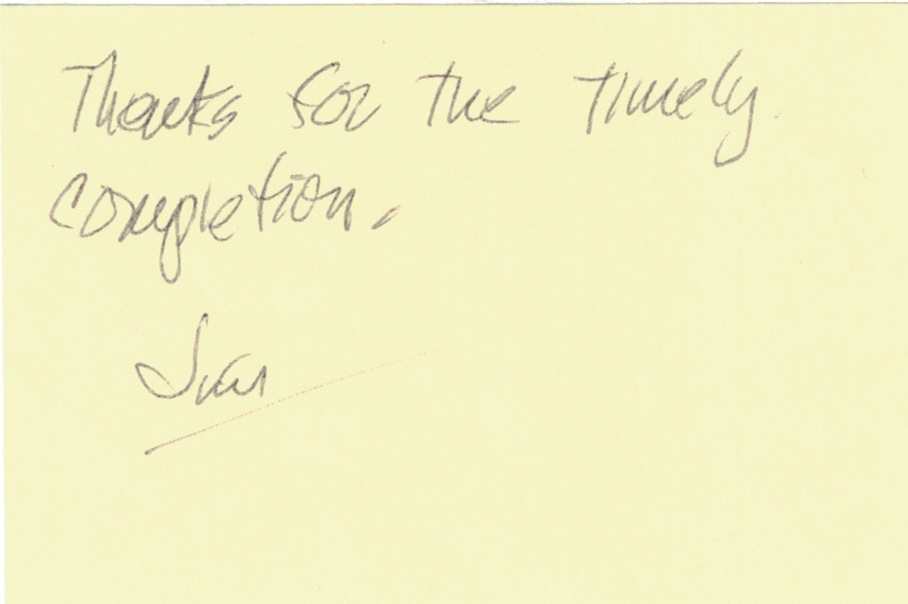 Thanks for the timely
completion.